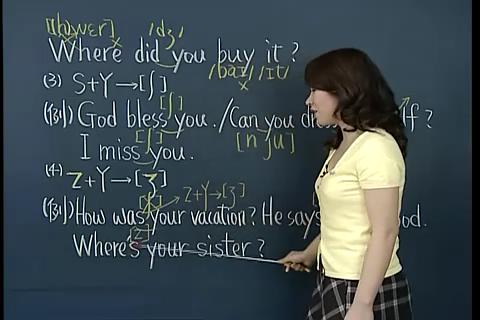 [hwɛr] /dʒ/
Where did you buy it?
/baɪ/ /ɪt/
(3) S+Y→[ʃ]
[ʃ]
(例) God bless you. /Can you f?
[ʃ] [n ju]
I miss you.
(4) Z+Y→[ʒ]
Z+Y→[ʒ]
(例) How was your vacation? He say od.
[z]
Where's your sister?